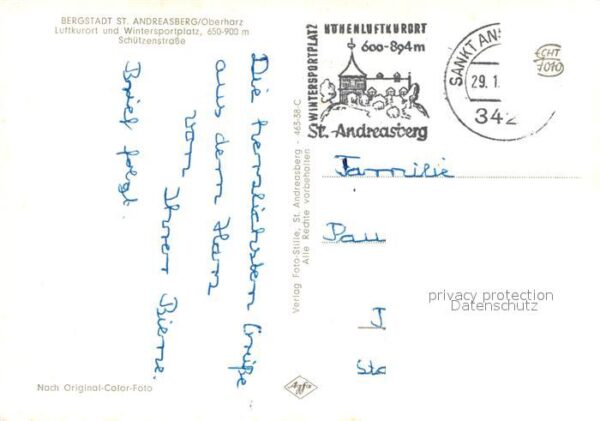 BERGSTADT ST. ANDREASBERG/Oberharz
Luftkurort und Wintersportplatz, 650-900 m
Schützenstraße
Die herzlichsten Grüße
aus dem Harz
von Ihrer
Brief folgt.
Nach Original-Color-Foto
Verlag Foto-Stille, St. Andreasberg - 465-38-C
Alle Rechte vorbehalten
Agfa
HÖHENLUFTKURORT
600-894m
WINTERSPORTPLATZ
St.-Andreasberg
SANKT AN
29.1.
342
ECHT
1010
Familie
Pau
J
Sta
privacy protection
Datenschutz